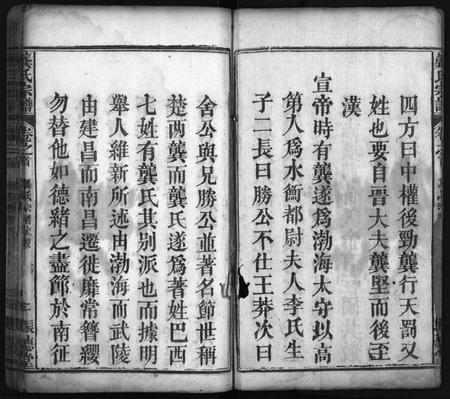 龔氏宗譜
四方曰中權後勁龔行天罰又
姓也要自晉大夫龔堅而後至
漢
宣帝時有龔遂爲渤海太守以高
第入爲水衡都尉夫人李氏生
子二長曰勝公不仕王莽次曰
舍公與兄勝公並著名節世稱
楚兩龔而龔氏遂爲著姓巴西
七姓有龔氏其別派也而據明
舉人維新所述由渤海而武陵
由建昌而南昌遷徙靡常簪纓
勿替他如德緒之盡節於南征
龔氏宗譜
卷之首